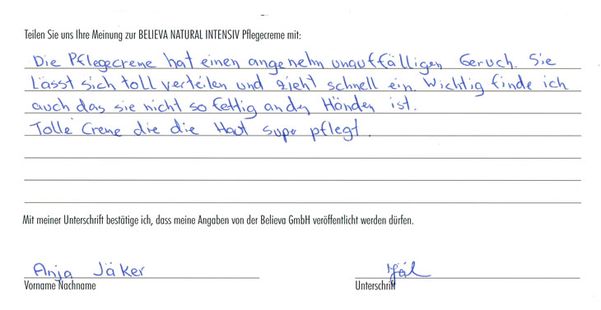 Teilen Sie uns Ihre Meinung zur BELIEVA NATURAL INTENSIV Pflegecreme mit:
Die Pflegecreme hat einen angenehm unauffälligen Geruch. Sie
lässt sich toll verteilen und zieht schnell ein. Wichtig finde ich
auch das sie nicht so fettig an den Händen ist.
Tolle Creme die die Haut supe pflegt.
Mit meiner Unterschrift bestätige ich, dass meine Angaben von der Believa GmbH veröffentlicht werden dürfen.
Anja Jäker
Vorname Nachname Unterschrift